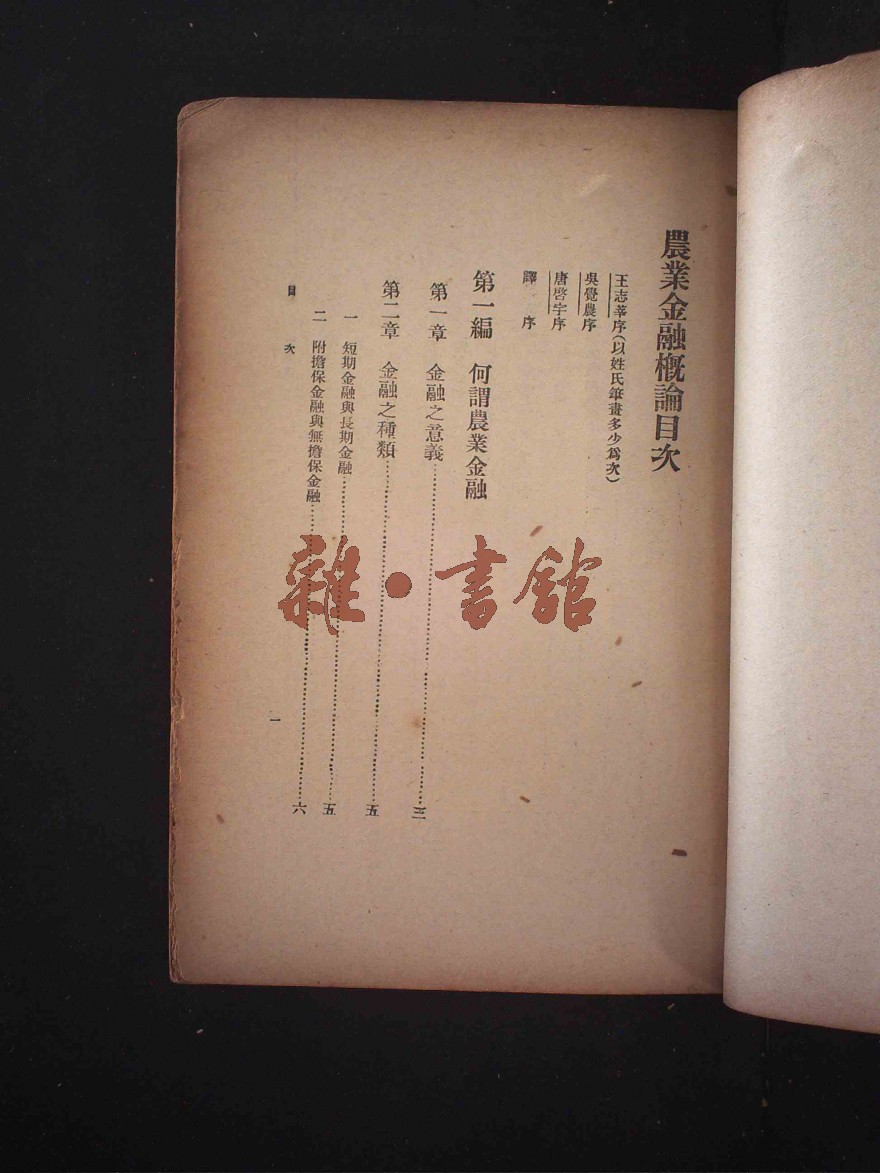 農業金融概論目次
王志莘序(以姓氏筆畫多少爲次)
吳覺農序
唐啓宇序
譯序
第一編 何謂農業金融
第一章 金融之意義……三
第二章 金融之種類……五
一 短期金融與長期金融……五
二 附擔保金融與無擔保金融……六
目次
一
雜·書館